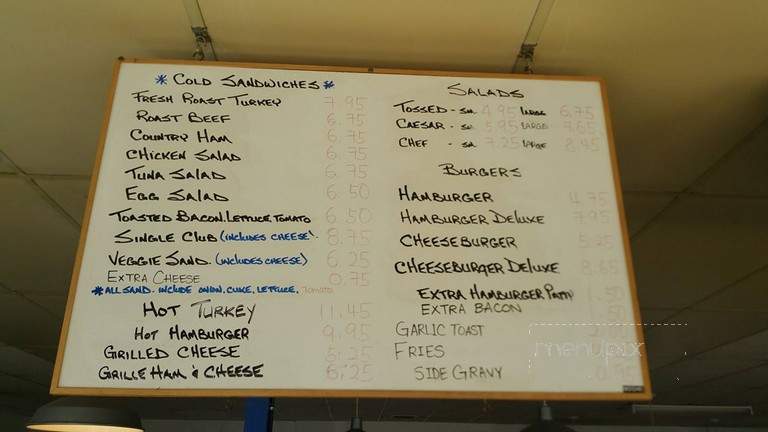 * COLD SANDWICHES *
FRESH ROAST TURKEY 7.95
ROAST BEEF 6.75
COUNTRY HAM 6.75
CHICKEN SALAD 6.75
TUNA SALAD 6.75
EGG SALAD 6.50
TOASTED BACON, LETTUCE, TOMATO 6.50
SINGLE CLUB (INCLUDES CHEESE) 8.75
VEGGIE SAND. (INCLUDES CHEESE) 6.25
EXTRA CHEESE 0.75
* ALL SAND. INCLUDE ONION, CUKE, LETTUCE, Tomato
HOT TURKEY 11.45
HOT HAMBURGER 9.95
GRILLED CHEESE 5.25
GRILLE HAM & CHEESE 6.25
SALADS
TOSSED - SM. 4.95 LARGE 6.75
CAESAR - SM. 5.95 LARGE 7.65
CHEF - SM. 7.25 LARGE 8.45
BURGERS
HAMBURGER 4.75
HAMBURGER DELUXE 7.95
CHEESEBURGER 5.25
CHEESEBURGER DELUXE
EXTRA HAMBURGER PATTY
EXTRA BACON
GARLIC TOAST
FRIES
SIDE GRAVY
menupix